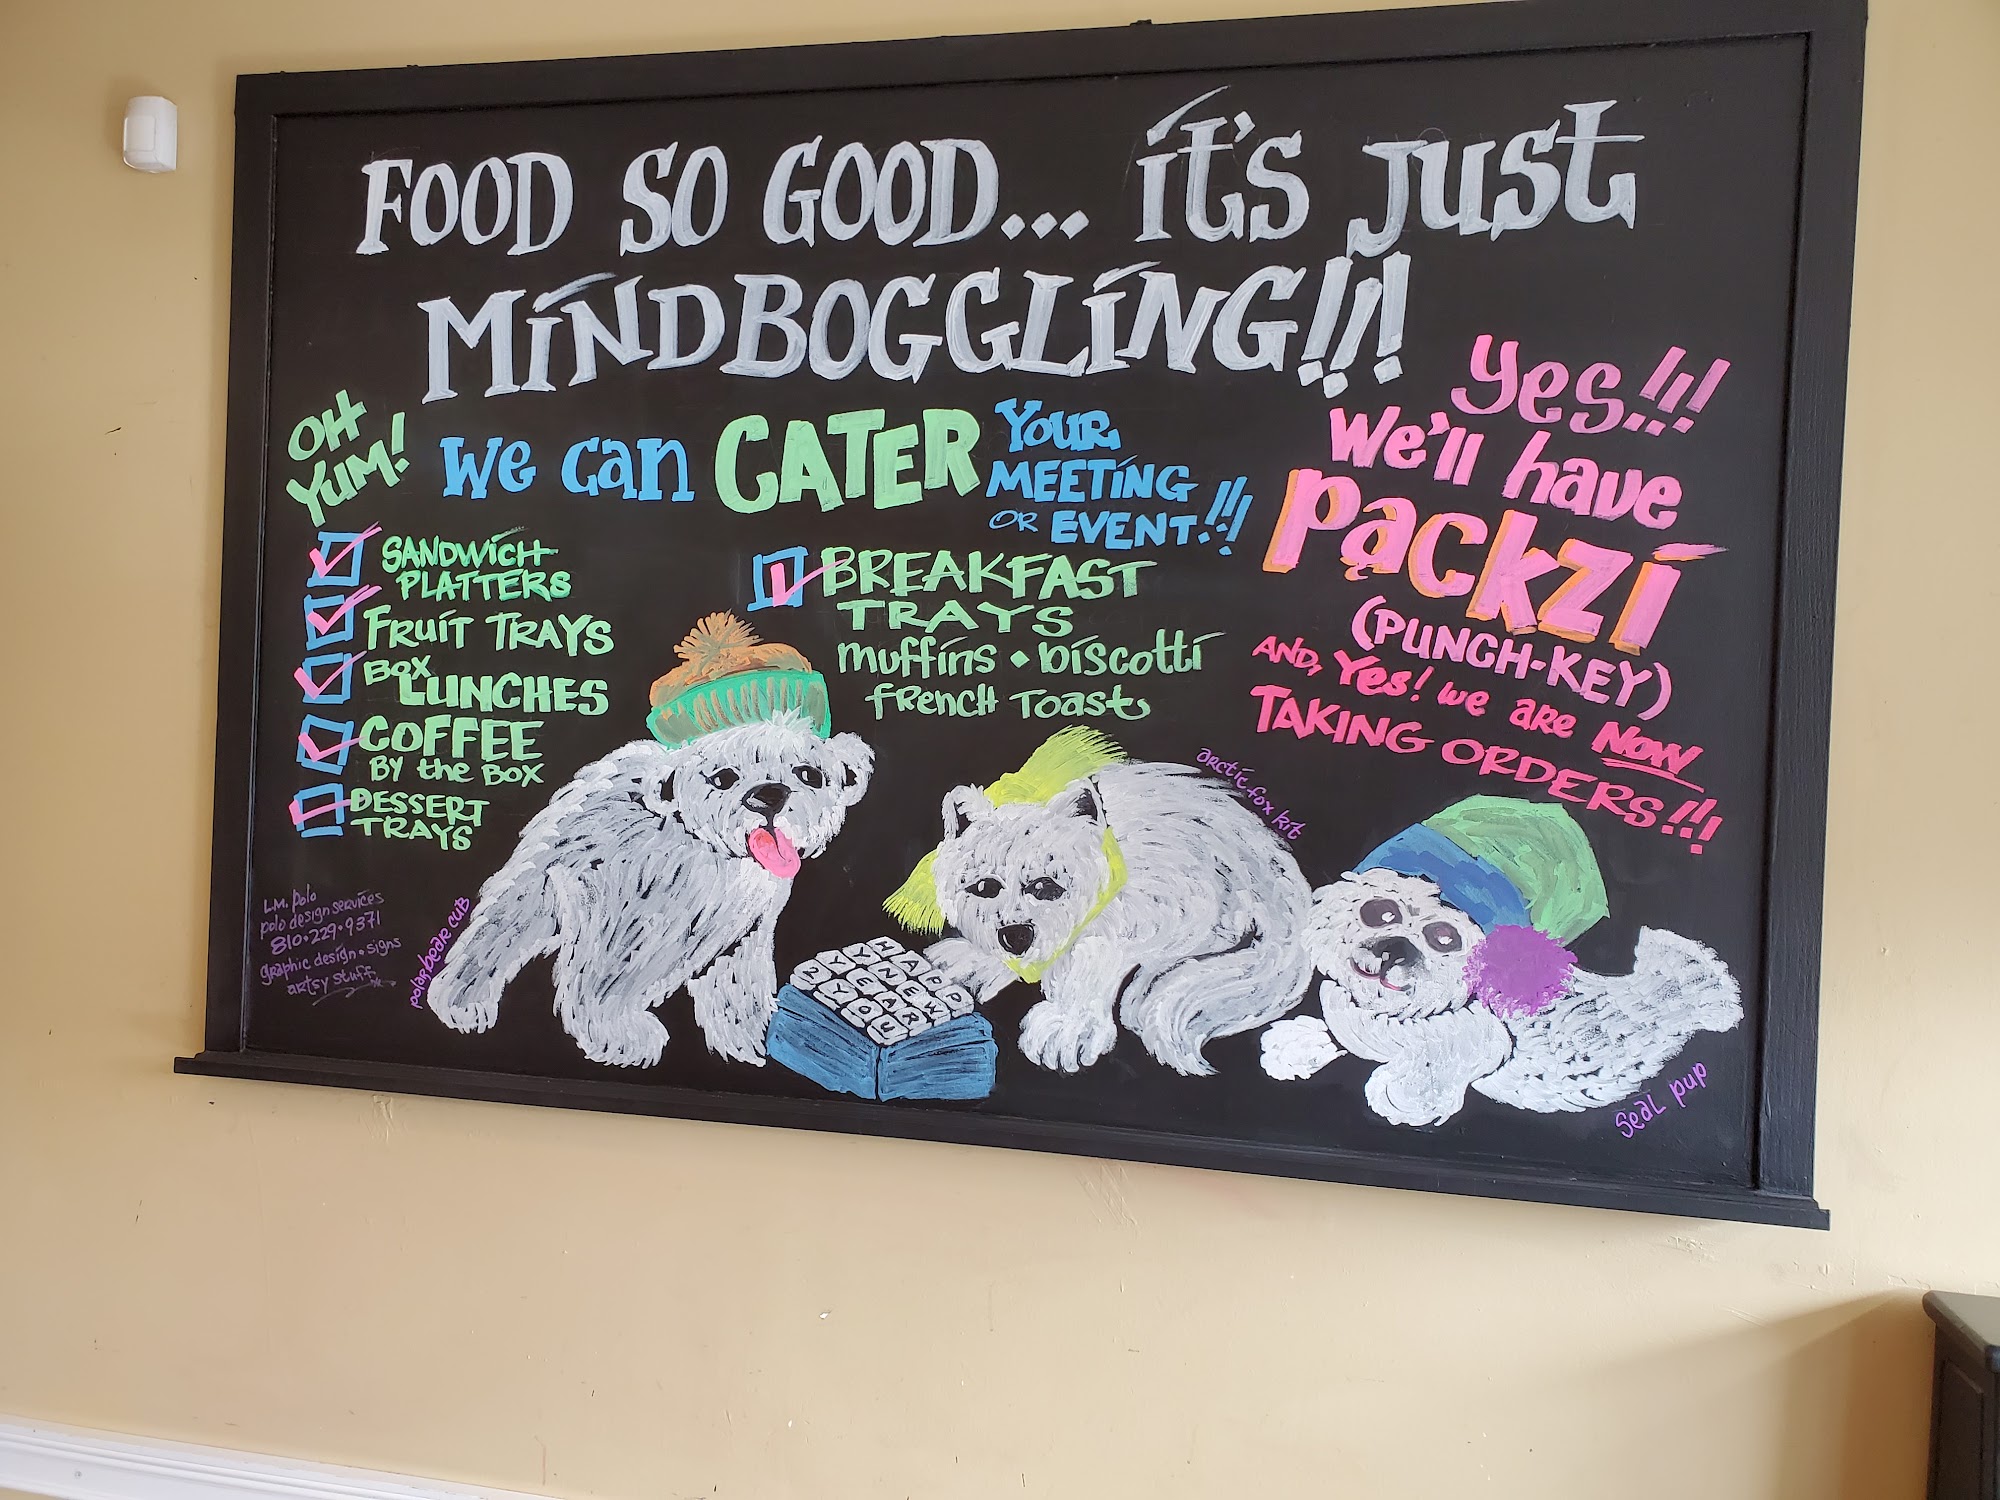 FOOD SO GOOD... it's Just
MiNDBOGGLiNG!!!
OH
YUM!
We can CATER
YOUR
MEETiNG
OR EVENT!!!
Yes!!!
We'll have
Pączki
(PUNCH-KEY)
AND, Yes! we are NOW
TAKING ORDERS!!!
SANDWiCH
PLATTERS
FRUiT TRAYS
BOX
LUNCHES
COFFEE
BY the BOX
DESSERT
TRAYS
BREAKFAST
TRAYS
muffins • biscotti
fRENCH TOast
polar bear cub
arctic fox kit
seal pup
HAPP
YYNEW
2YEAR
YOU
L.M. Polo
polo design services
810•229•9371
graphic design • signs
artsy stuff